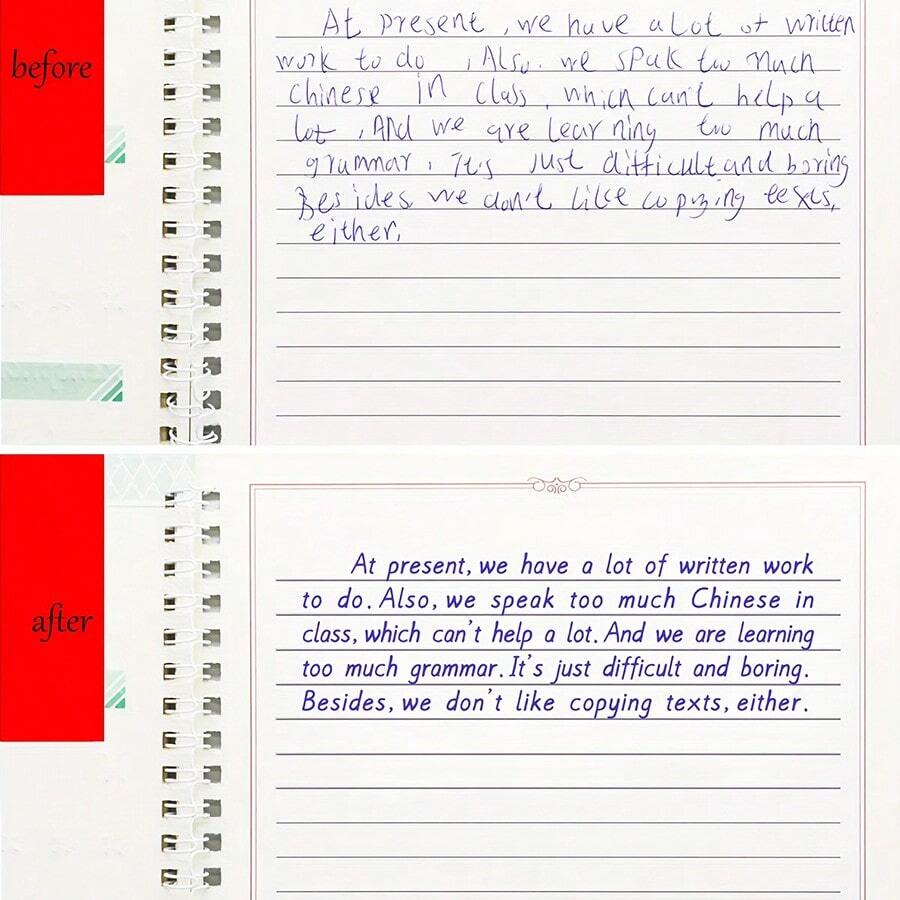 before
At present, we have a lot of written
work to do , Also. we spak too much
Chinese in class, which can't help a
lot , And we are learning too much
grammar, It's just difficult and boring
Besides, we don't like copying texts,
either.
after
At present, we have a lot of written work
to do. Also, we speak too much Chinese in
class, which can't help a lot. And we are learning
too much grammar. It's just difficult and boring.
Besides, we don't like copying texts, either.